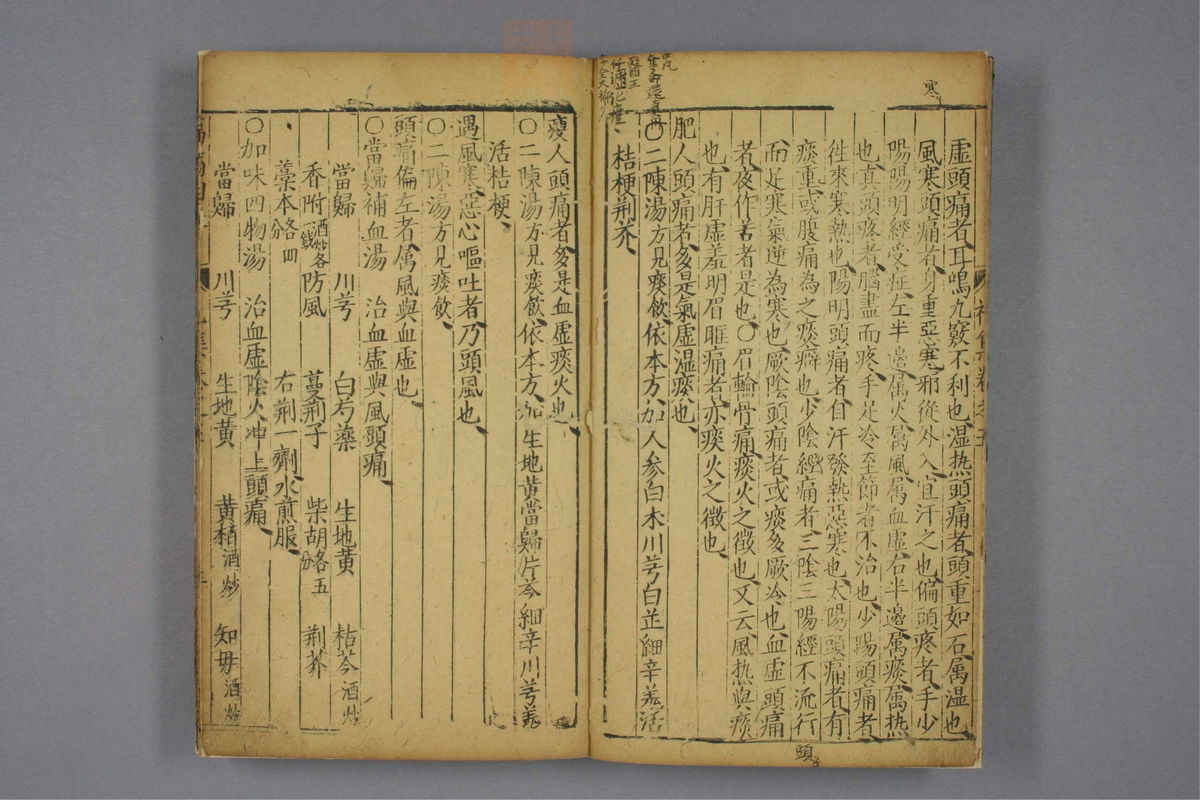 虛頭痛者耳鳴九竅不利也濕热頭痛者頭重如石属湿也
風寒頭痛者身重惡寒邪從外入宜汗之也偏頭疼者手少
陽陽明經受症左半邊属火属風属血虛右半邊属痰属热
也真頭疼者腦盡而疼手足冷至節者不治也少陽頭痛者
徃來寒熱也陽明頭痛者自汗發熱惡寒也太陽頭痛者有
痰重或腹痛為之痰癖也少陰經痛者三陰三陽經不流行
而足寒氣逆為寒也厥陰頭痛者或痰多厥冷也血虛頭痛
者夜作苦者是也〇眉輪骨痛痰火之徵也又云風热與痰
也有肝虛羞明眉眶痛者亦痰火之徵也
肥人頭痛者多是氣虛湿痰也
〇二陳湯方見痰飲依本方加人参白术川芎白芷細辛羗活
桔梗荆芥
瘦人頭痛者多是血虛痰火也
〇二陳湯方見痰飲依本方加生地黄當歸片芩細辛川芎羗
活桔梗
遇風寒惡心嘔吐者乃頭風也
〇二陳湯方見痰飲
頭痛偏左者属風與血虛也
〇當歸補血湯　治血虛與風頭痛
當歸　川芎　白芍藥　生地黄　枯芩酒炒
香附酒炒各一錢　防風　蔓荆子　柴胡各五分　荆芥
藁本各四分　右剉一劑水煎服
〇加味四物湯　治血虛陰火冲上頭痛
當歸　川芎　生地黄　黄栢酒炒　知母酒炒
寒
頭